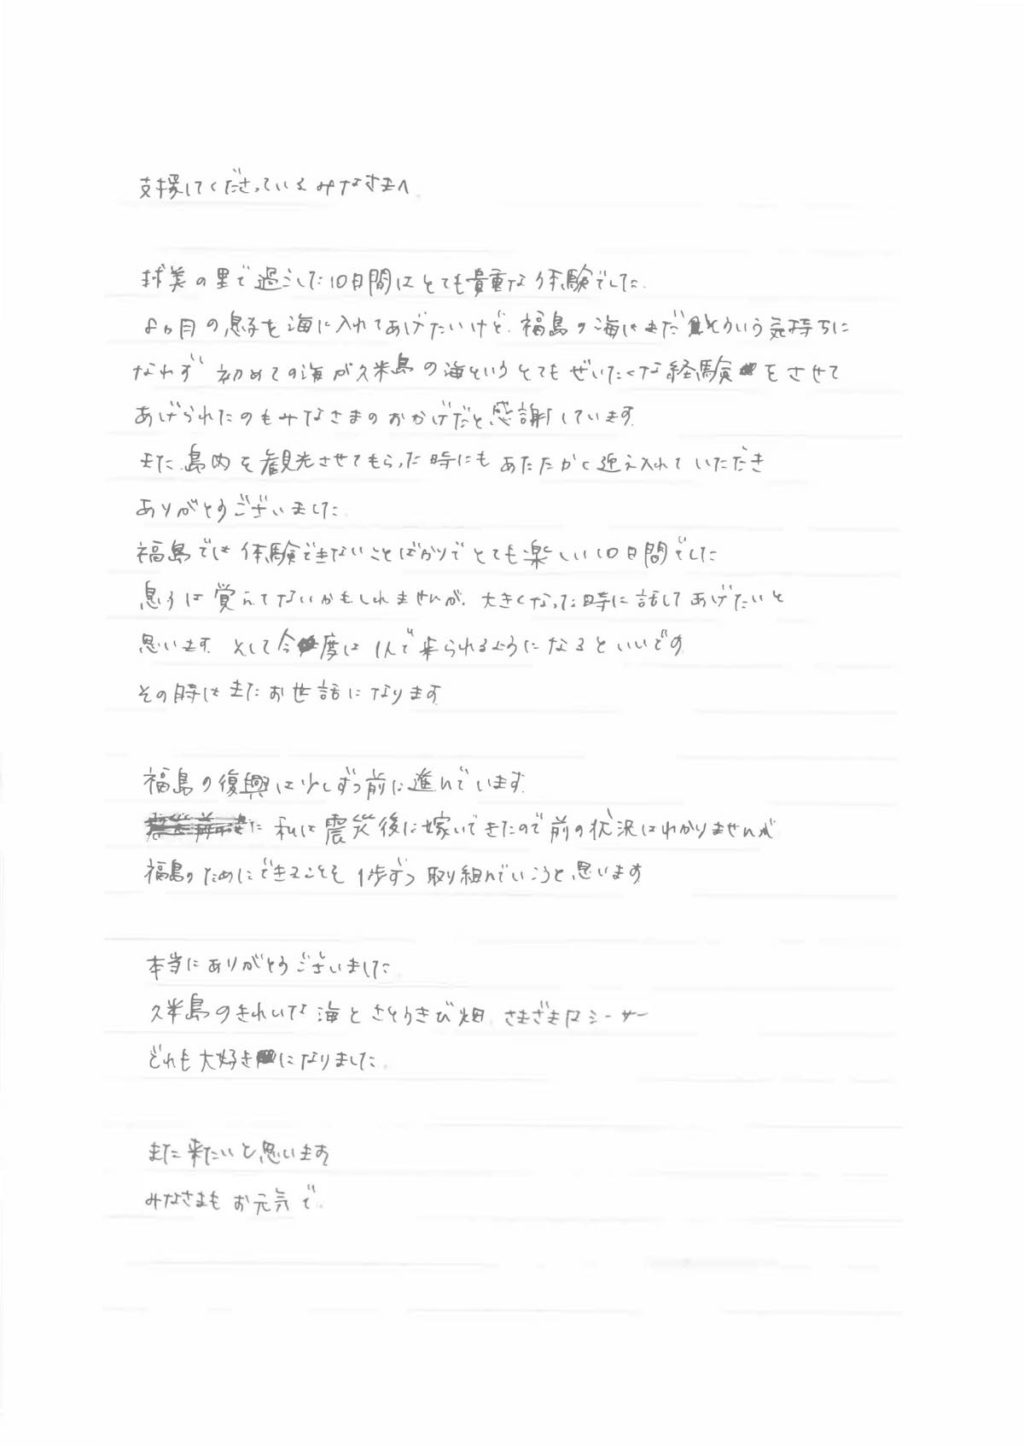 支援してくださっているみなさまへ
球美の里で過ごした10日間はとても貴重な体験でした。
8ヵ月の息子を海に入れてあげたいけど、福島の海はまだそういう気持ちに
なれず 初めての海が久米島の海というとてもぜいたくな経験をさせて
あげられたのもみなさまのおかげだと感謝しています。
また島内を観光させてもらった時にもあたたかく迎え入れていただき
ありがとうございました。
福島では体験できないことばかりでとても楽しい10日間でした
息子は覚えてないかもしれませんが、大きくなった時に話してあげたいと
思います。そして今度は1人で来られるようになるといいです
その時はまたお世話になります。
福島の復興は少しずつ前に進んでいます。
私は震災後に嫁いできたので前の状況はわかりませんが
福島のためにできることを1歩ずつ取り組んでいこうと思います
本当にありがとうございました
久米島のきれいな海とさとうきび畑、さまざまなシーサー
どれも大好きになりました。
また来たいと思います
みなさまもお元気で。